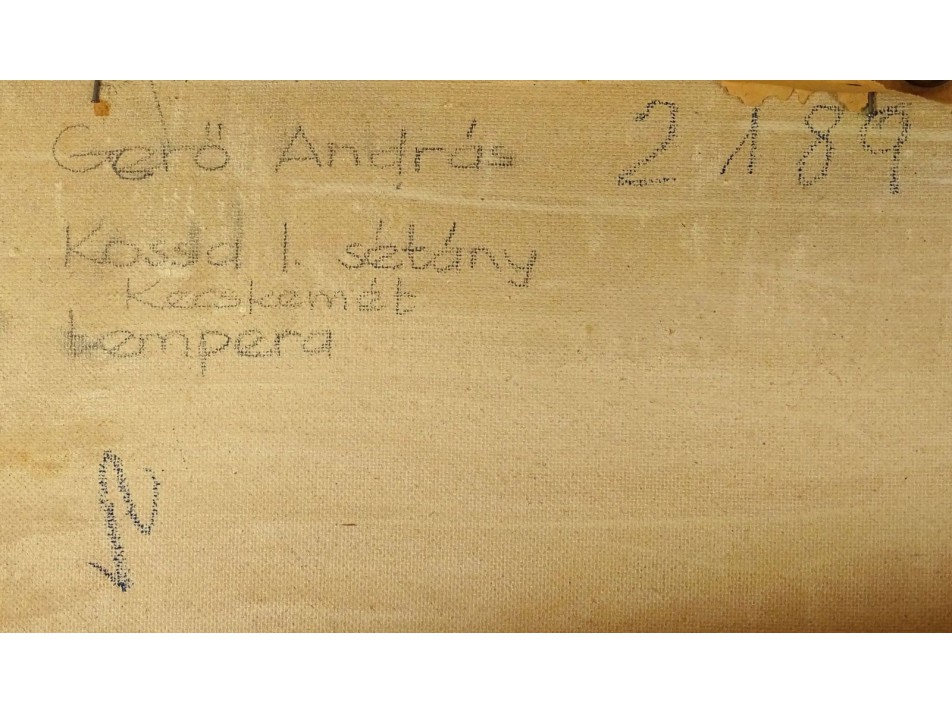 Gerő András 2189
Kossid l. sétány
Kecskemét
tempera